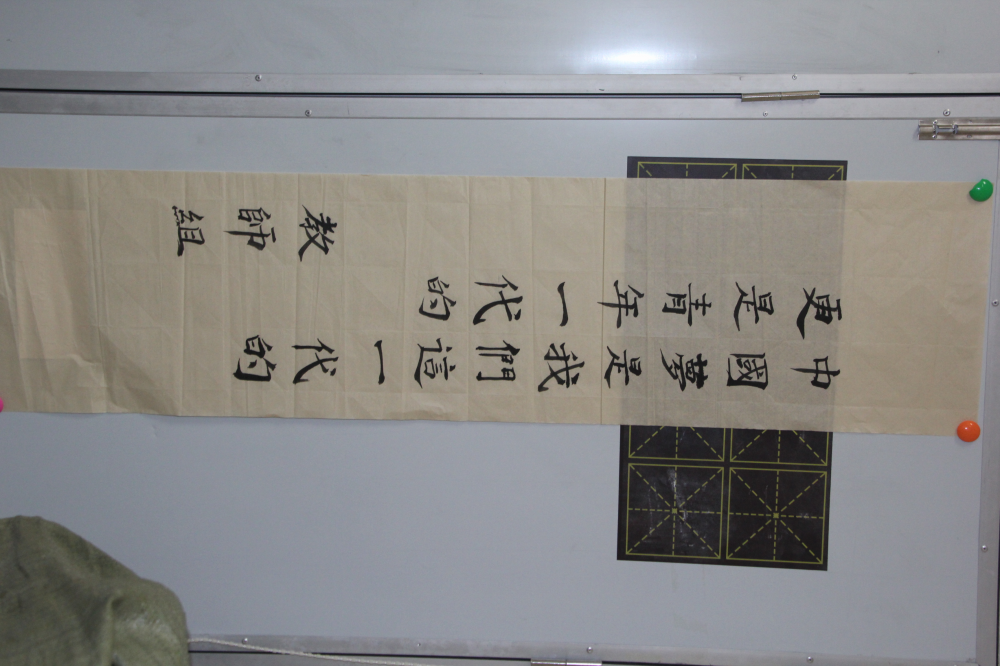 中國夢是我們這一代的
更是青年一代的
教師組